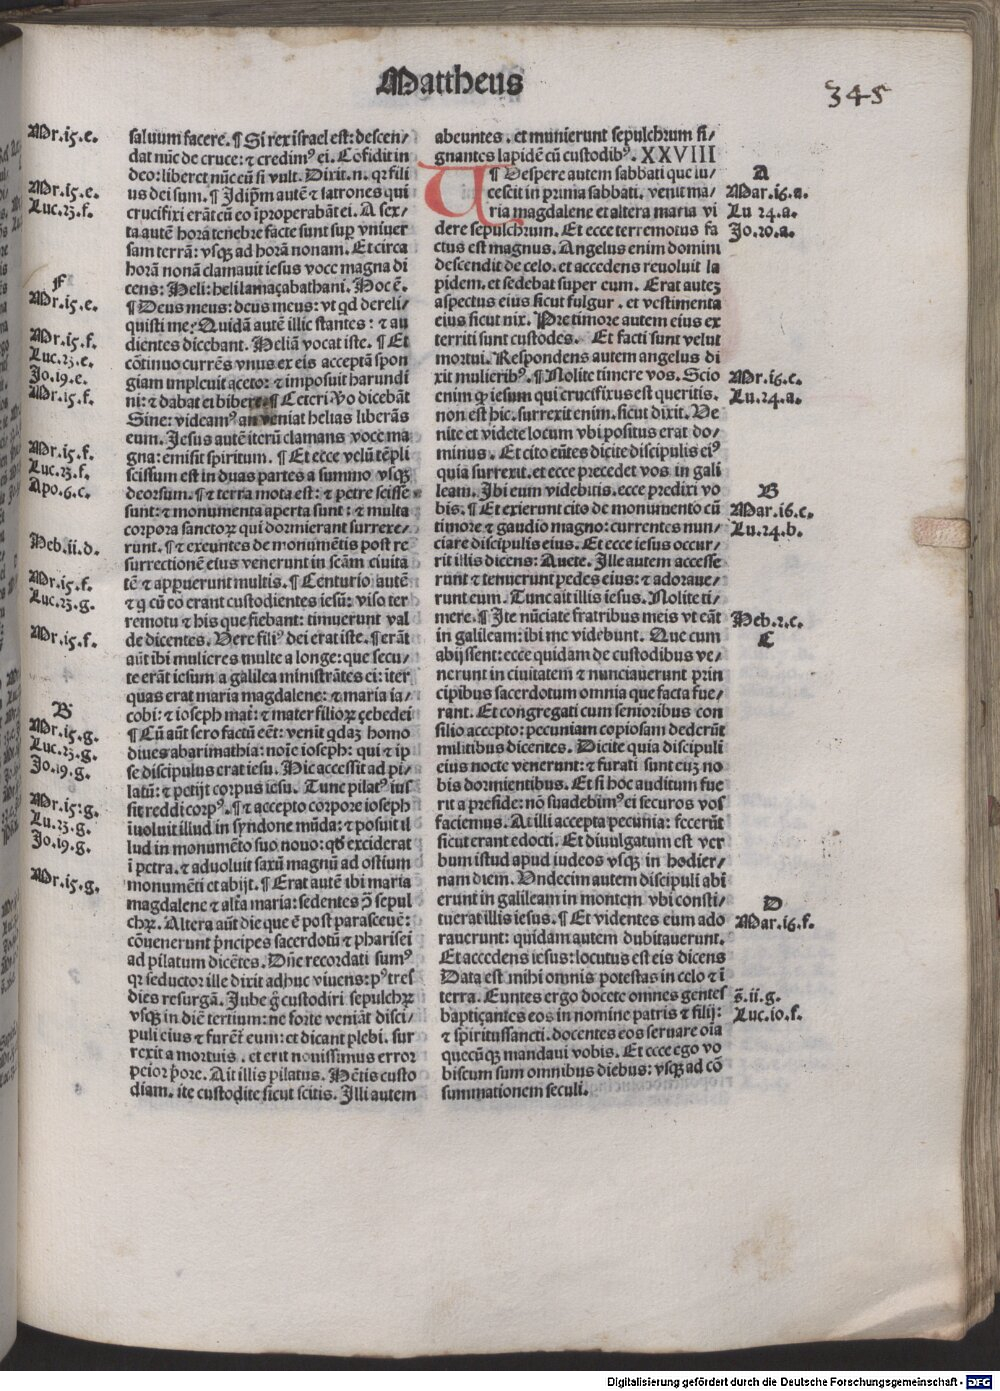 Mattheus
345
Mr.i5.e.
Mr.i5.e.
Luc.23.f.
F
Mr.i5.e.
Mr.i5.f.
Luc.23.e.
Jo.i9.e.
Mr.i5.f.
Mr.i5.f.
Luc.23.f.
Apo.6.c.
Heb.ii.d.
Mr.i5.f.
Luc.23.g.
Mr.i5.f.
B
Mr.i5.g.
Luc.23.g.
Jo.i9.g.
Mr.i5.g.
Lu.23.g.
Jo.i9.g.
Mr.i5.g.
saluum facere. ¶ Si rex israel est: descen/
dat nūc de cruce: ⁊ credimꝰ ei. Cōfidit in
deo: liberet nūc eū si vult. Dixit.n. qꝛ fili
us dei sum. ¶ Idipm̄ autē ⁊ latrones qui
crucifixi erāt cū eo īproperabāt ei. A sex/
ta autē horā tenebre facte sunt sup vniuer
sam terrā: vsqꝫ ad horā nonam. Et circa
horā nonā clamauit iesus voce magna di
cens: Heli: heli lamaçabathani. Hoc ē.
¶ Deus meus: deus meus: vt qd dereli/
quisti me? Quidā autē illic stantes: ⁊ au
dientes dicebant. Heliā vocat iste. ¶ Et
cōtinuo currēs vnus ex eis acceptā spon
giam impleuit aceto: ⁊ imposuit harundi
ni: ⁊ dabat ei bibere. ¶ Ceteri v̄o dicebāt
Sine: videamꝰ an veniat helias liberās
eum. Jesus autē iterū clamans voce ma
gna: emisit spiritum. ¶ Et ecce velū tēpli
scissum est in duas partes a summo vsqꝫ
deorsum. ¶ ⁊ terra mota est: ⁊ petre scisse
sunt: ⁊ monumenta aperta sunt: ⁊ multa
corpora sanctoꝝ qui dormierant surrexe/
runt. ¶ ⁊ exeuntes de monumētis post re
surrectionē eius venerunt in scām ciuita
tē ⁊ apparuerunt multis. ¶ Centurio autē
⁊ q cū eo erant custodientes iesū: viso ter
remotu ⁊ his que fiebant: timuerunt val
de dicentes. Vere filiꝰ dei erat iste. ¶ erāt
aūt ibi mulieres multe a longe: que secu/
te erāt iesum a galilea ministrātes ei: iter
quas erat maria magdalene: ⁊ maria ia/
cobi: ⁊ ioseph mat̄: ⁊ mater filioꝝ çebedei
¶ Cū aūt sero factū eēt: venit qdaꝫ homo
diues ab arimathia: noīe ioseph: qui ⁊ ip
se discipulus erat iesu. Hic accessit ad pi/
latū: ⁊ petijt corpus iesu. Tunc pilatꝰ ius
sit reddi corpꝰ. ¶ ⁊ accepto corpore ioseph
īuoluit illud in syndone mūda: ⁊ posuit il
lud in monumēto suo nouo: qd exciderat
ī petra. ⁊ aduoluit saxū magnū ad ostium
monumēti et abijt. ¶ Erat autē ibi maria
magdalene ⁊ alt̄a maria: sedentes ꝯ̄ sepul
chꝝ. Altera aūt die que ē post parasceuē:
cōuenerunt p̄ncipes sacerdotū ⁊ pharisei
ad pilatum dicētes. Dn̄e recordati sumꝰ
qꝛ seductor ille dixit adhuc viuens: pꝰ tres
dies resurgā. Jube g̊ custodiri sepulchꝝ
vsqꝫ in diē tertium: ne forte veniāt disci/
puli eius ⁊ furēt̄ eum: et dicant plebi. sur
rexit a mortuis. et erit nouissimus error
peior p̄ore. Ait illis pilatus. Hētis custo
diam. ite custodite sicut scitis. Illi autem
abeuntes. et munierunt sepulchrum si/
gnantes lapidē cū custodibꝰ. XXVIII
¶ Vespere autem sabbati que lu/
cescit in prima sabbati. venit ma/
ria magdalene et altera maria vi
dere sepulchrum. Et ecce terremotus fa
ctus est magnus. Angelus enim domini
descendit de celo. et accedens reuoluit la
pidem. et sedebat super eum. Erat auteꝫ
aspectus eius sicut fulgur. et vestimenta
eius sicut nix. Pre timore autem eius ex
territi sunt custodes. Et facti sunt velut
mortui. Respondens autem angelus di
xit mulieribꝰ. ¶ Nolite timere vos. Scio
enim qꝛ iesum qui crucifixus est queritis.
non est hic. surrexit enim. sicut dixit. Ve
nite et videte locum vbi positus erat do/
minus. Et cito eūtes dicite discipulis eiꝰ
quia surrexit. et ecce precedet vos in gali
leam. Ibi eum videbitis. ecce predixi vo
bis. ¶ Et exierunt cito de monumento cū
timore ⁊ gaudio magno: currentes nun/
ciare discipulis eius. Et ecce iesus occur/
rit illis dicens: Auete. Ille autem accesse
runt ⁊ tenuerunt pedes eius: ⁊ adoraue/
runt eum. Tunc ait illis iesus. Nolite ti/
mere. ¶ Ite nūciate fratribus meis vt eāt
in galileam: ibi me videbunt. Que cum
abijssent: ecce quidam de custodibus ve/
nerunt in ciuitatem ⁊ nunciauerunt prin
cipibus sacerdotum omnia que facta fue/
rant. Et congregati cum senioribus con
silio accepto: pecuniam copiosam dederūt
militibus dicentes. Dicite quia discipuli
eius nocte venerunt: ⁊ furati sunt euꝫ no
bis dormientibus. Et si hoc auditum fue
rit a preside: nō suadebimꝰ ei securos vos
faciemus. At illi accepta pecunia: fecerūt
sicut erant edocti. Et diuulgatum est ver
bum istud apud iudeos vsqꝫ in hodier/
nam diem. Vndecim autem discipuli abi
erunt in galileam in montem vbi consti/
tuerat illis iesus. ¶ Et videntes eum ado
rauerunt: quidam autem dubitauerunt.
Et accedens iesus: locutus est eis dicens
Data est mihi omnis potestas in celo ⁊ ī
terra. Euntes ergo docete omnes gentes
baptiçantes eos in nomine patris ⁊ filij:
⁊ spiritussancti. docentes eos seruare oīa
quecūqꝫ mandaui vobis. Et ecce ego vo
biscum sum omnibus diebus: vsqꝫ ad cō
summationem seculi.
A
Mar.i6.a.
Lu 24.a.
Jo.20.a.
Mr.i6.c.
Lu.24.a.
B
Mar.i6.c.
Lu.24.b.
Heb.2.c.
C
D
Mar.i6.f.
s̄.ii.g.
Luc.i0.f.
Digitalisierung gefördert durch die Deutsche Forschungsgemeinschaft - DFG